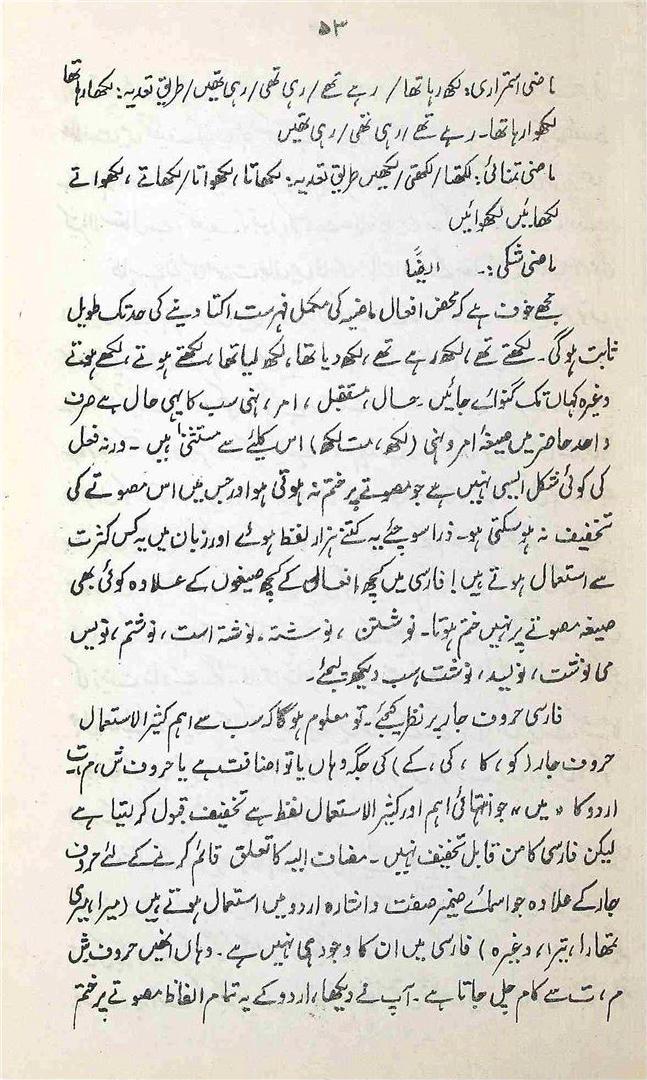 ۵۳
ماضی استمراری: لکھ رہا تھا / رہے تھے / رہی تھی / رہی تھیں / طریق تعدیہ: لکھا رہا تھا
لکھوا رہا تھا۔ رہے تھے / رہی تھی / رہی تھیں
ماضی تمنائی: لکھتا / لکھتی / لکھتیں طریق تعدیہ: لکھاتا، لکھواتا / لکھاتے، لکھواتے
لکھائیں لکھوائیں
ماضی شکی:۔ ایضًا
مجھے خوف ہے کہ محض افعال ماضیہ کی مکمل فہرست اکتا دینے کی حد تک طویل
ثابت ہوگی۔ لکھتے تھے، لکھ رہے تھے، لکھ دیا تھا، لکھ لیا تھا، لکھتے ہوتے، لکھے ہوتے
وغیرہ کہاں تک گنوائے جائیں۔ حال، مستقبل، امر، نہی سب کا یہی حال ہے صرف
واحد حاضر میں صیغۂ امر و نہی (لکھ، مت لکھ) اس کلیے سے مستثنیٰ ہیں۔ ورنہ فعل
کی کوئی شکل ایسی نہیں ہے جو مصوتے پر ختم نہ ہوتی ہو اور جس میں اس مصوتے کی
تخفیف نہ ہو سکتی ہو۔ ذرا سوچئے یہ کتنے ہزار لفظ ہوئے اور زبان میں یہ کس کثرت
سے استعمال ہوتے ہیں! فارسی میں کچھ افعال کے کچھ صیغوں کے علاوہ کوئی بھی
صیغہ مصوتے پر نہیں ختم ہوتا۔ نوشتن، نوشتہ، نوشتہ است، نوشتم، نویس
می نوشت، نویسد، نوشت سب دیکھ لیجئے۔
فارسی حروف جار پر نظر کیجئے۔ تو معلوم ہوگا کہ سب سے اہم کثیر الاستعمال
حروف جار (کو، کا، کی، کے) کی جگہ وہاں یا تو اضافت ہے یا حروف ش، م، ت
اردو کا "میں" جو انتہائی اہم اور کثیر الاستعمال لفظ ہے تخفیف قبول کر لیتا ہے
لیکن فارسی کا من قابل تخفیف نہیں۔ مضاف الیہ کا تعلق قائم کرنے کے لئے حروف
جار کے علاوہ جو اسمائے ضمیر صفت و اشارہ اردو میں استعمال ہوتے ہیں (میرا، میری
تمھارا، تیرا، وغیرہ) فارسی میں ان کا وجود ہی نہیں ہے۔ وہاں انھیں حروف ش
م، ت سے کام چل جاتا ہے۔ آپ نے دیکھا، اردو کے یہ تمام الفاظ مصوتے پر ختم